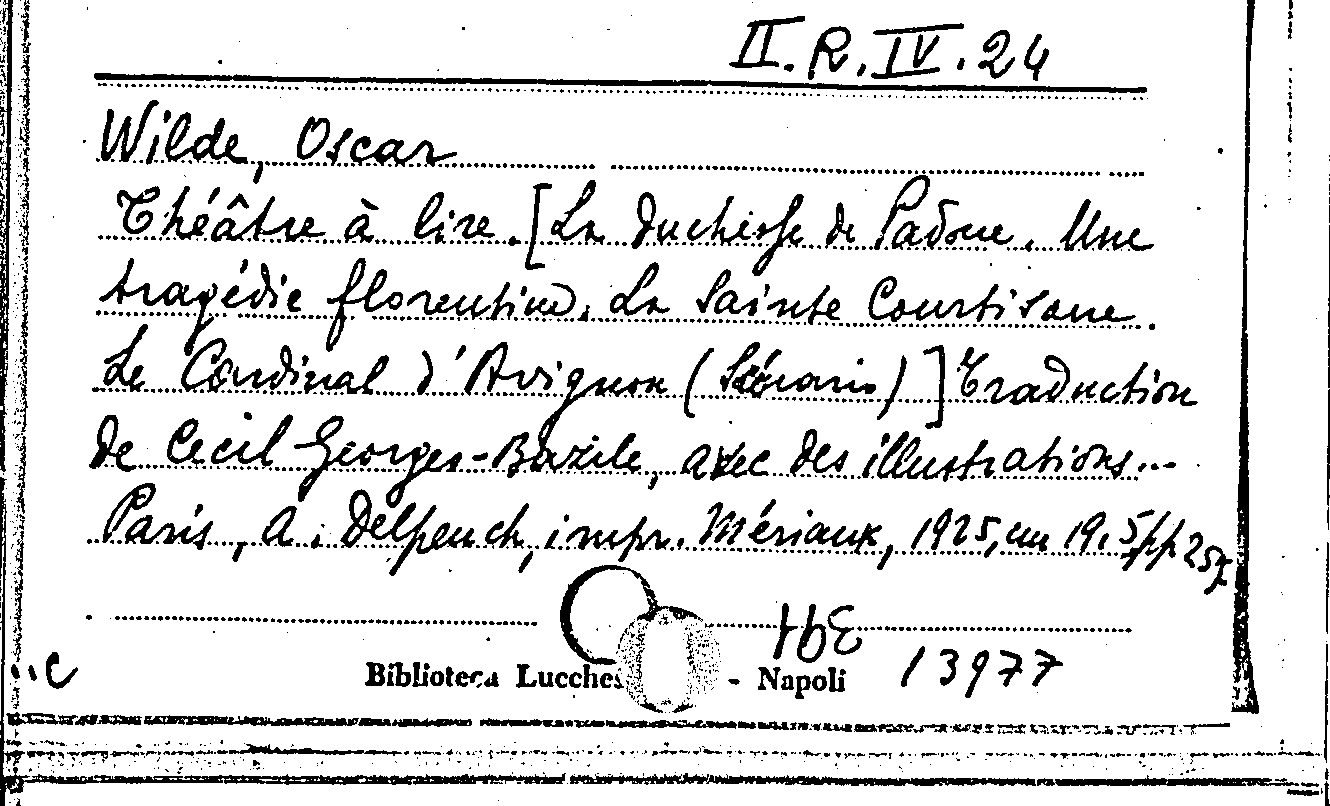 II.R.IV.24
Wilde, Oscar
Théâtre à lire. [La Duchesse de Padoue. Une
tragédie florentine. La Sainte Courtisane.
Le Cardinal d'Avignon (Scénario)] Traduction
de Cecil Georges-Bazile, avec des illustrations...
Paris, A. Delpeuch, impr. Mériaux, 1925, cm 19,5, pp 257
Biblioteca Lucches - Napoli 13977